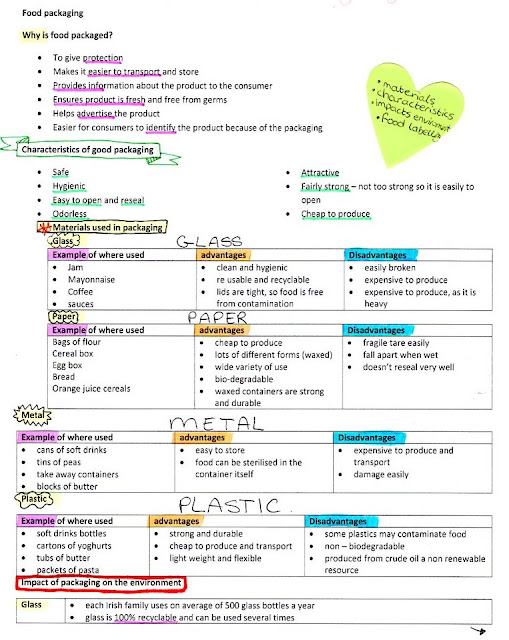 Food packaging
Why is food packaged?
• To give protection
• Makes it easier to transport and store
• Provides information about the product to the consumer
• Ensures product is fresh and free from germs
• Helps advertise the product
• Easier for consumers to identify the product because of the packaging
• materials
• characteristics
• impacts enviroment
• food labelling
Characteristics of good packaging
• Safe
• Hygienic
• Easy to open and reseal
• Odorless
• Attractive
• Fairly strong – not too strong so it is easily to
open
• Cheap to produce
Materials used in packaging
Glass
GLASS
Example of where used advantages Disadvantages
• Jam
• Mayonnaise
• Coffee
• sauces
• clean and hygienic
• re usable and recyclable
• lids are tight, so food is free
from contamination
• easily broken
• expensive to produce
• expensive to produce, as it is
heavy
Paper
PAPER
Example of where used advantages Disadvantages
Bags of flour
Cereal box
Egg box
Bread
Orange juice cereals
• cheap to produce
• lots of different forms (waxed)
• wide variety of use
• bio-degradable
• waxed containers are strong
and durable
• fragile tare easily
• fall apart when wet
• doesn't reseal very well
Metal
METAL
Example of where used advantages Disadvantages
• cans of soft drinks
• tins of peas
• take away containers
• blocks of butter
• easy to store
• food can be sterilised in the
container itself
• expensive to produce and
transport
• damage easily
Plastic
PLASTIC
Example of where used advantages Disadvantages
• soft drinks bottles
• cartons of yoghurts
• tubs of butter
• packets of pasta
• strong and durable
• cheap to produce and transport
• light weight and flexible
• some plastics may contaminate food
• non – biodegradable
• produced from crude oil a non renewable
resource
Impact of packaging on the environment
Glass
• each Irish family uses on average of 500 glass bottles a year
• glass is 100% recyclable and can be used several times